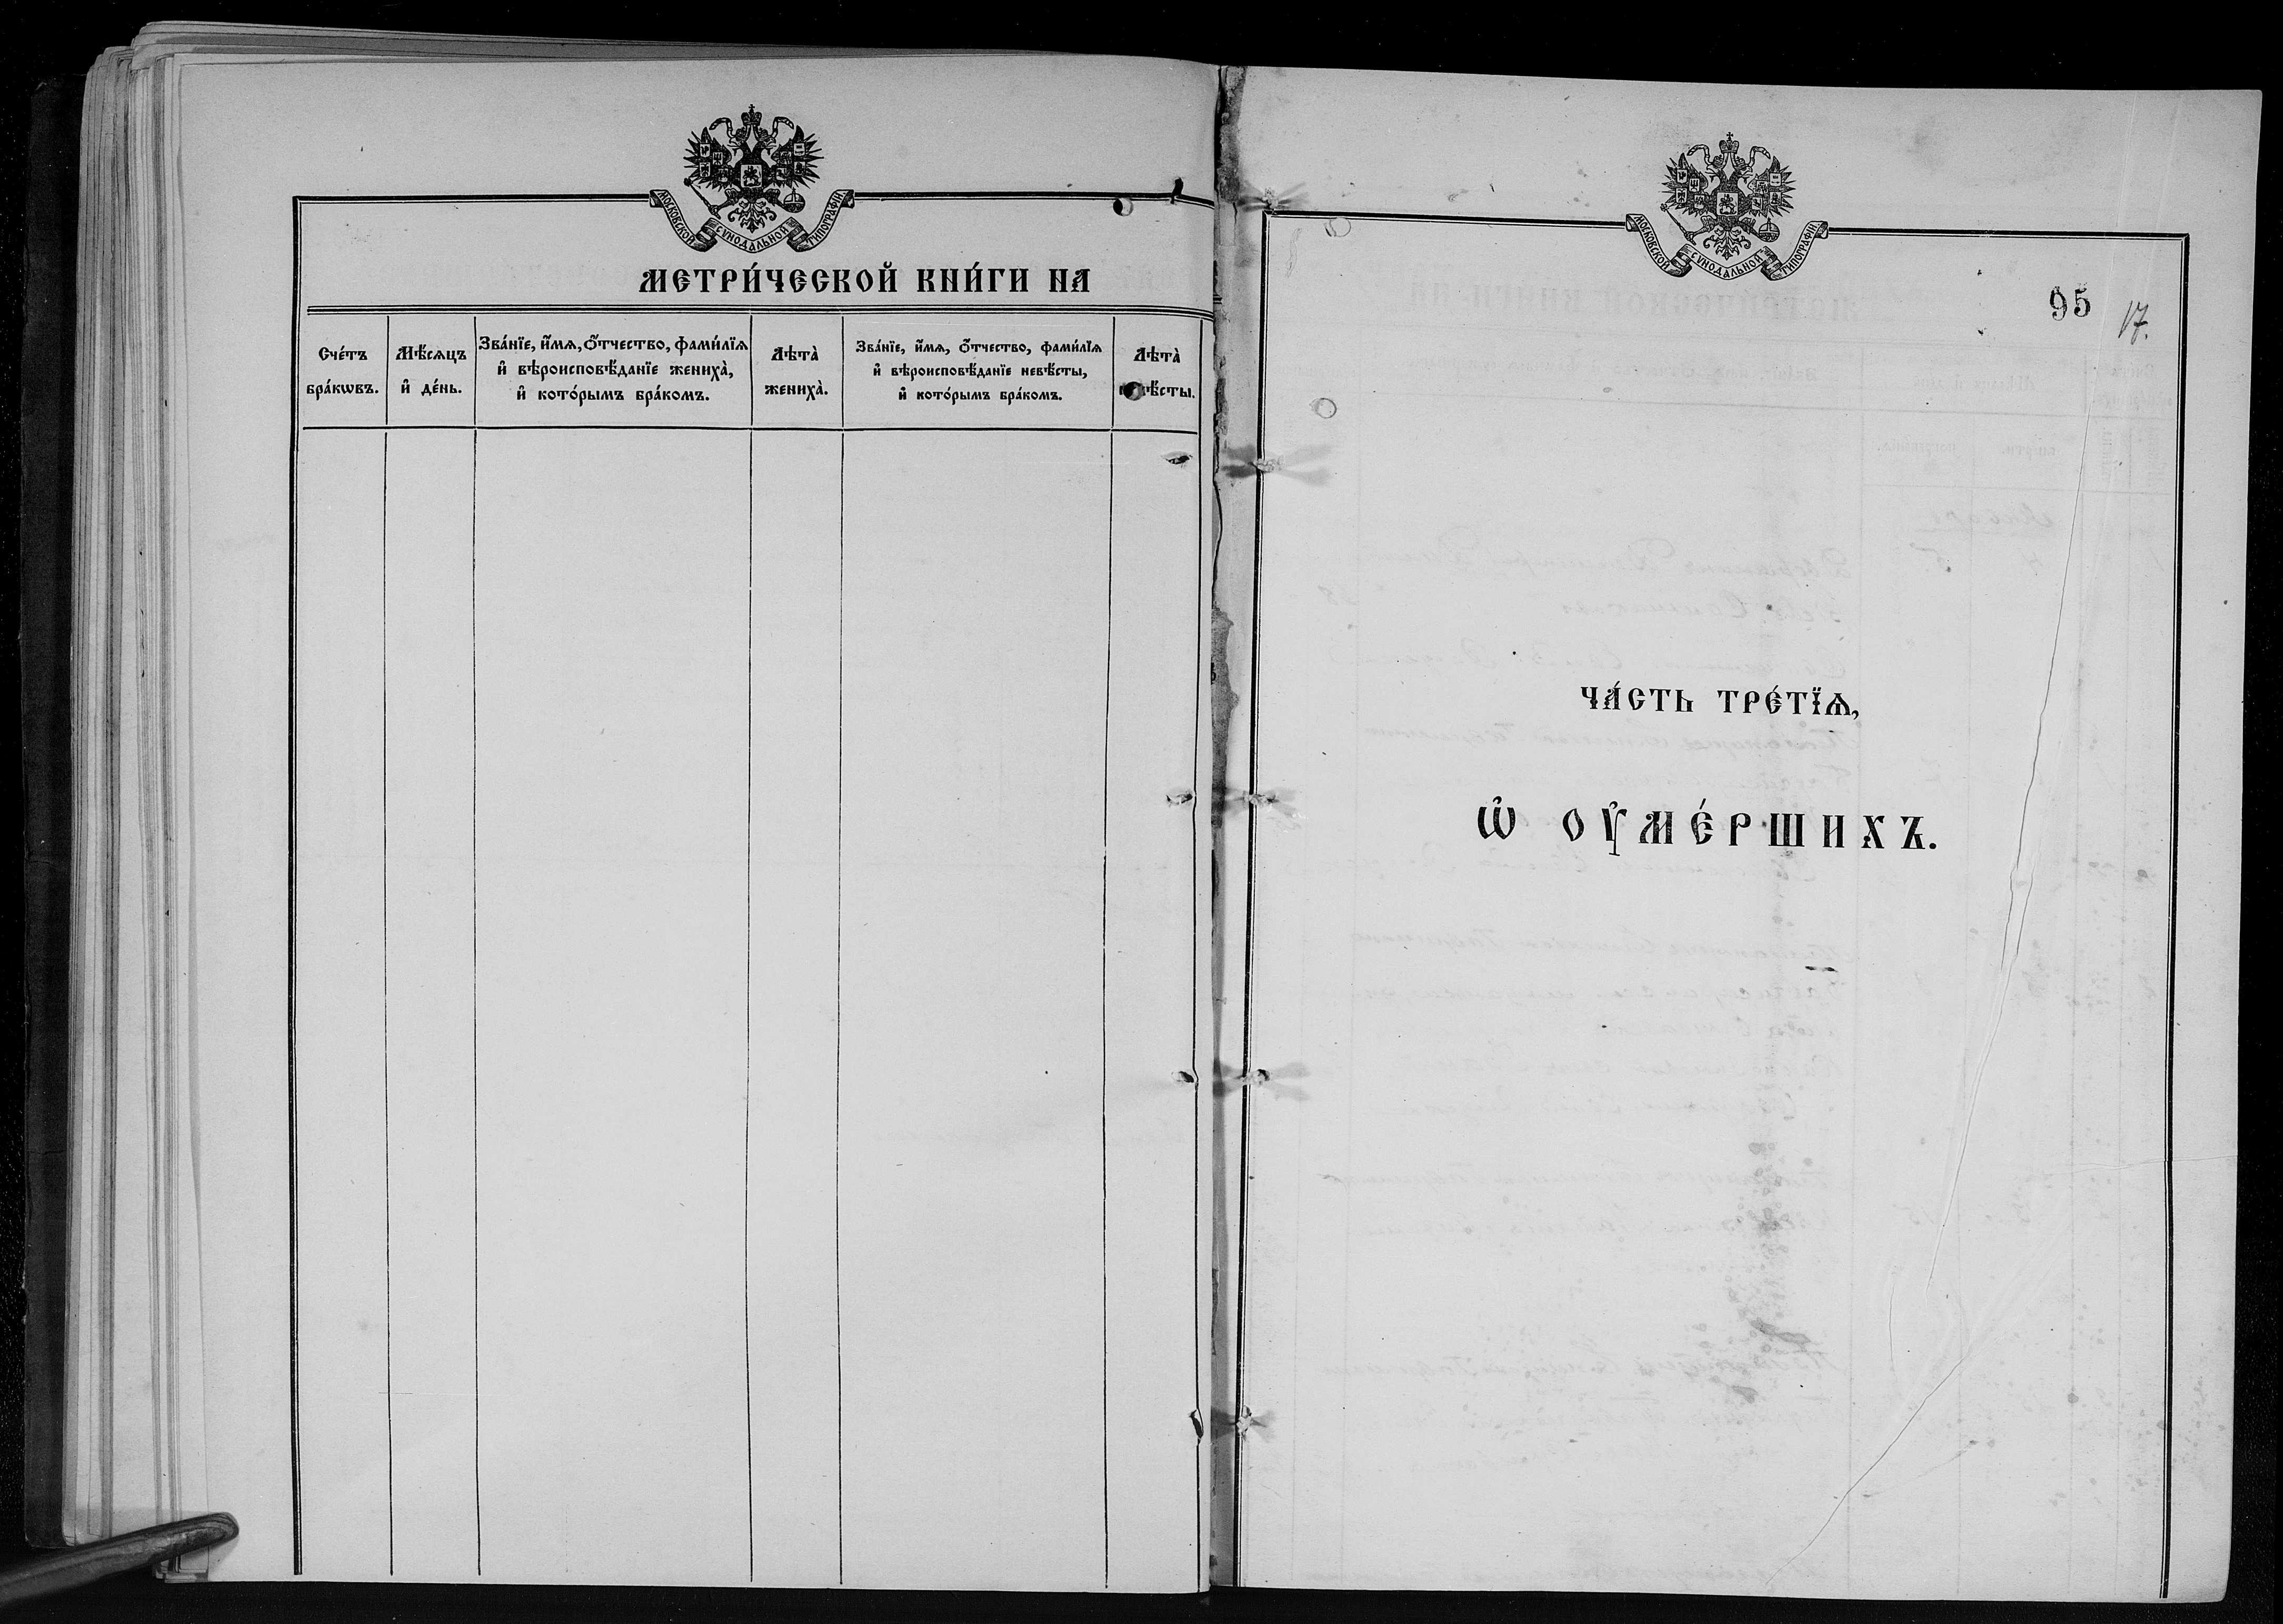 МОСКОВСКОЙ СѴНОДАЛЬНОЙ ТИПОГРАФІИ.
МЕТРИ́ЧЕСКОЙ КНИ́ГИ НА
Сче́тъ
бра́кѡвъ.
Мѣ́сѧцъ
и҆ де́нь.
Зва́нїе, и҆́мѧ, ѻ҆́тчество, фами́лїѧ
и҆ вѣроисповѣ́данїе жениха̀,
и҆ кото́рымъ бра́комъ.
Лѣта̀
жениха̀.
Зва́нїе, и҆́мѧ, ѻ҆́тчество, фами́лїѧ
и҆ вѣроисповѣ́данїе невѣ́сты,
и҆ кото́рымъ бра́комъ.
Лѣта̀
невѣ́сты.
МОСКОВСКОЙ СѴНОДАЛЬНОЙ ТИПОГРАФІИ.
95
17.
ЧА́СТЬ ТРЕ́ТЇѦ,
Ѡ҆ ОУ҆МЕ́РШИХЪ.